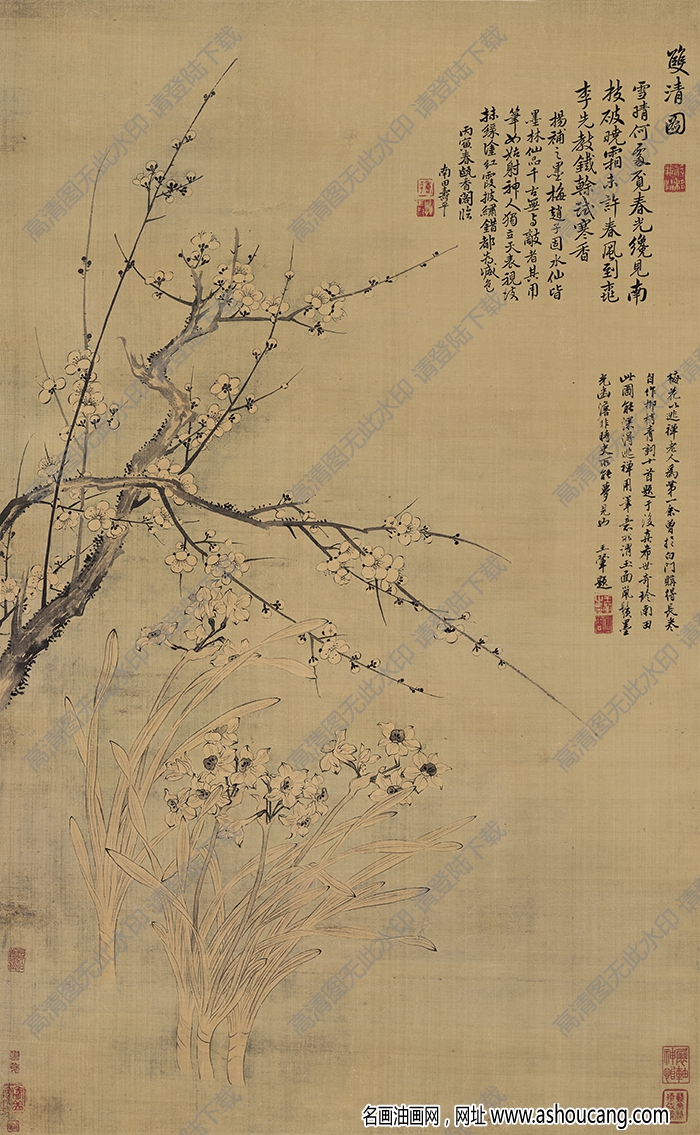 雙清圖
雪晴何處覓春光纔見南
枝破曉霜未許春風到桃
李先教鐵榦試寒香
揚補之墨梅趙子固水仙皆
墨林仙品千古無與敵者其用
筆如姑射神人獨立天表視後
抹綠塗紅霞披繡錯都為減色
丙寅春甌香閣臨
南田壽平
梅花以逃禪老人為第一余曾於白門購得長卷
自作柳梢青詞十首題于後真希世奇珍南田
此圖能深得逃禪用筆意所謂玉面風鬟墨
光幽澹非時史所能夢見也
王翬題
高清图无此水印 请登陆下载
名画油画网，网址 www.ashoucang.com